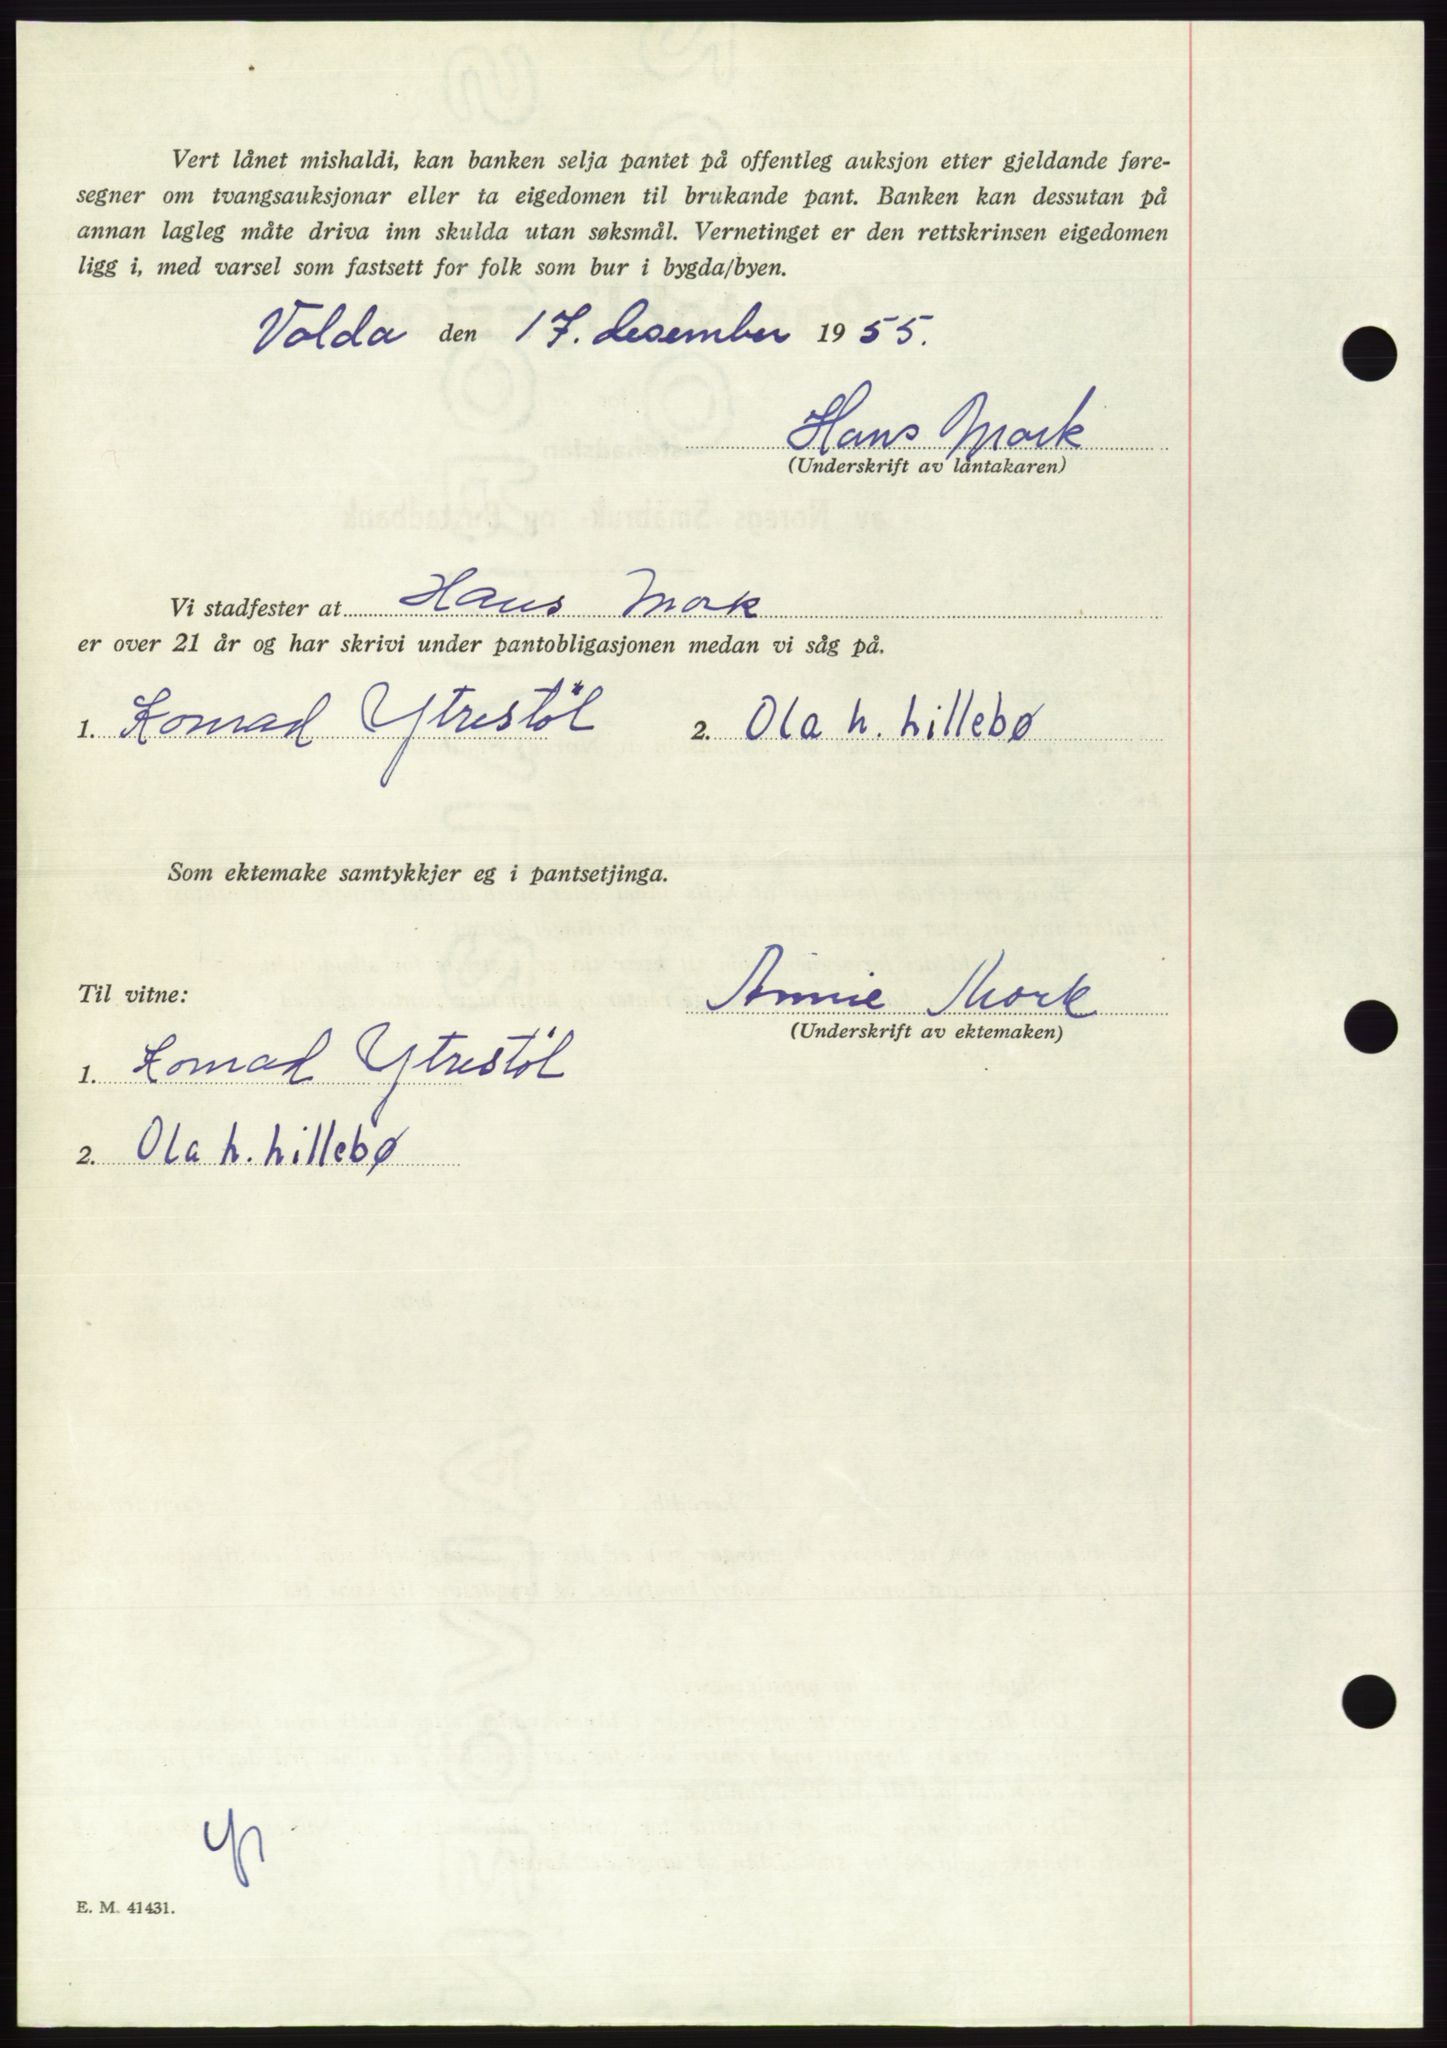 Vert lånet mishaldi, kan banken selja pantet på offentleg auksjon etter gjeldande føre-
segner om tvangsauksjonar eller ta eigedomen til brukande pant. Banken kan dessutan på
annan lagleg måte driva inn skulda utan søksmål. Vernetinget er den rettskrinsen eigedomen
ligg i, med varsel som fastsett for folk som bur i bygda/byen.
Volda den 17. desember 1955.
Hans Mork
(Underskrift av låntakaren)
Vi stadfester at Hans Mork
er over 21 år og har skrivi under pantobligasjonen medan vi såg på.
1. Konrad Ytrestøl 2. Ola h. Lillebø
Som ektemake samtykkjer eg i pantsetjinga.
Til vitne:
Annie Mork
(Underskrift av ektemaken)
1. Konrad Ytrestøl
2. Ola h. Lillebø
E. M. 41431.